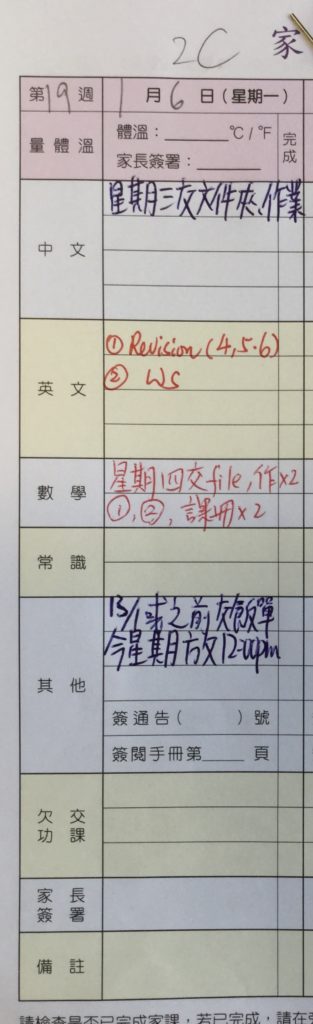 2C 家
第19週 1月6日(星期一)
量體溫
體溫：______℃/℉
家長簽署：______
完成
中文
星期三交文件夾、作業
英文
① Revision (4,5,6)
② WS
數學
星期四交file, 作×2
①,②, 課冊×2
常識
其他
13/1或之前交飯單
今星期月方放12:00pm
簽通告( )號
簽閱手冊第____頁
欠交功課
家長簽署
備註
請檢查是否已完成家課，若已完成，請在